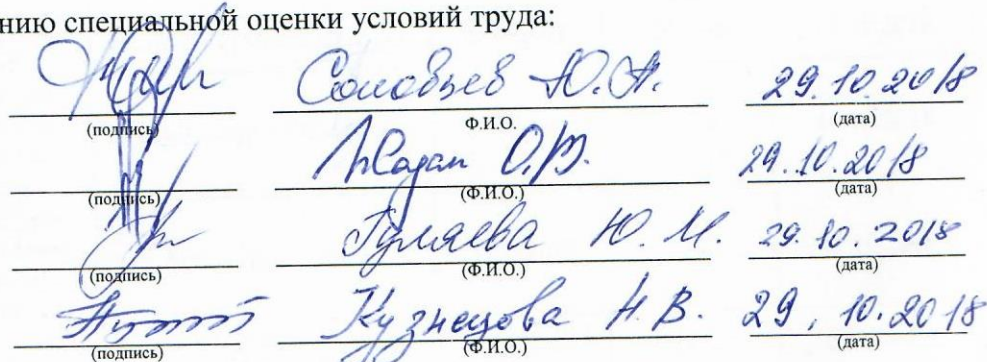 нию специальной оценки условий труда:
Соловьев Ю.А. 29.10.2018
(подпись) Ф.И.О. (дата)
О.В. 29.10.2018
(подпись) (Ф.И.О.) (дата)
Гуляева Ю.М. 29.10.2018
(подпись) (Ф.И.О.) (дата)
Кузнецова Н.В. 29.10.2018
(подпись) (Ф.И.О.) (дата)